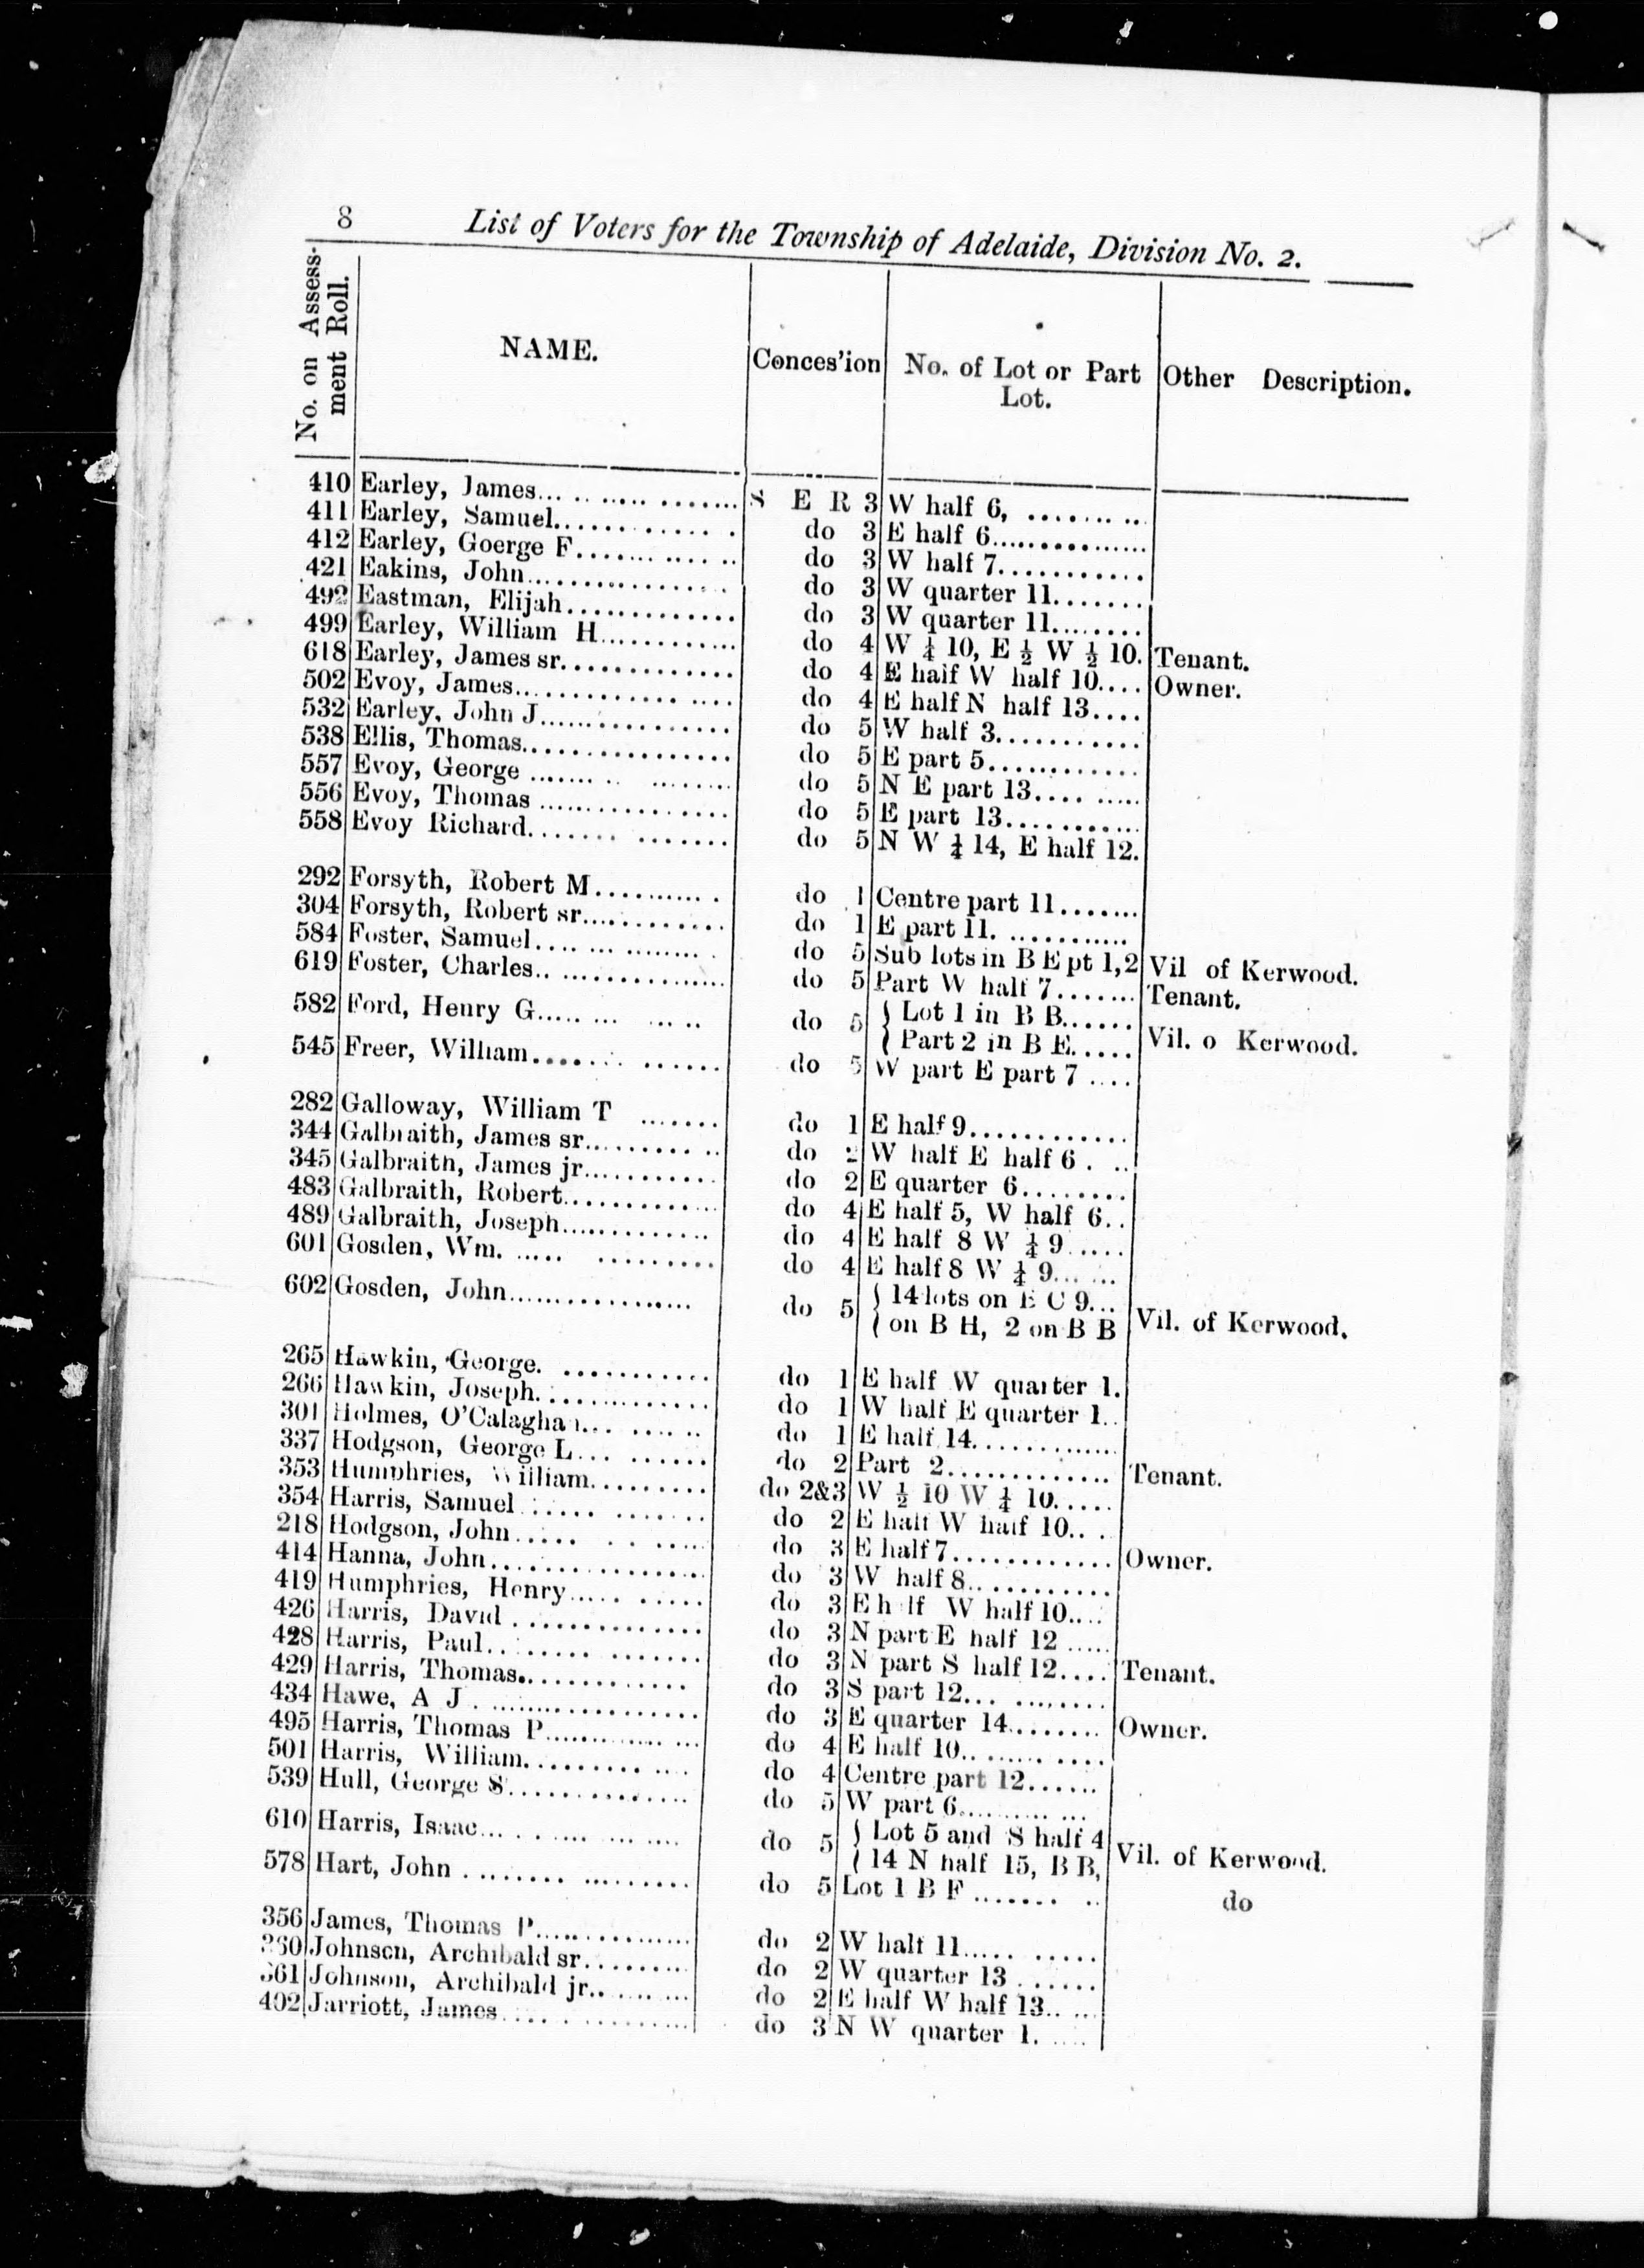 8 List of Voters for the Township of Adelaide, Division No. 2.
No. on Assess-
ment Roll.
NAME.
Conces'ion
No. of Lot or Part
Lot.
Other Description.
410 Earley, James S E R 3 W half 6,
411 Earley, Samuel do 3 E half 6
412 Earley, Goerge F do 3 W half 7
421 Eakins, John do 3 W quarter 11
492 Eastman, Elijah do 3 W quarter 11
499 Earley, William H do 4 W ¼ 10, E ½ W ½ 10. Tenant.
618 Earley, James sr. do 4 E half W half 10 Owner.
502 Evoy, James do 4 E half N half 13
532 Earley, John J do 5 W half 3
538 Ellis, Thomas do 5 E part 5
557 Evoy, George do 5 N E part 13
556 Evoy, Thomas do 5 E part 13
558 Evoy Richard do 5 N W ¼ 14, E half 12.
292 Forsyth, Robert M do 1 Centre part 11
304 Forsyth, Robert sr do 1 E part 11.
584 Foster, Samuel do 5 Sub lots in B E pt 1,2 Vil of Kerwood.
619 Foster, Charles do 5 Part W half 7 Tenant.
582 Ford, Henry G do 5 { Lot 1 in B B
{ Part 2 in B E Vil. o Kerwood.
545 Freer, William do 5 W part E part 7
282 Galloway, William T do 1 E half 9
344 Galbraith, James sr do 2 W half E half 6
345 Galbraith, James jr do 2 E quarter 6
483 Galbraith, Robert do 4 E half 5, W half 6
489 Galbraith, Joseph do 4 E half 8 W ¼ 9
601 Gosden, Wm. do 4 E half 8 W ¼ 9
602 Gosden, John do 5 { 14 lots on E C 9
{ on B H, 2 on B B Vil. of Kerwood.
265 Hawkin, George. do 1 E half W quarter 1.
266 Hawkin, Joseph do 1 W half E quarter 1
301 Holmes, O'Calaghan do 1 E half 14
337 Hodgson, George L do 2 Part 2 Tenant.
353 Humphries, William do 2&3 W ½ 10 W ¼ 10
354 Harris, Samuel do 2 E half W half 10
218 Hodgson, John do 3 E half 7 Owner.
414 Hanna, John do 3 W half 8
419 Humphries, Henry do 3 E h lf W half 10
426 Harris, David do 3 N part E half 12
428 Harris, Paul do 3 N part S half 12 Tenant.
429 Harris, Thomas do 3 S part 12
434 Hawe, A J do 3 E quarter 14 Owner.
495 Harris, Thomas P do 4 E half 10
501 Harris, William do 4 Centre part 12
539 Hull, George S do 5 W part 6
610 Harris, Isaac do 5 { Lot 5 and S half 4
{ 14 N half 15, B B, Vil. of Kerwood.
578 Hart, John do 5 Lot 1 B F do
356 James, Thomas P do 2 W half 11
360 Johnson, Archibald sr do 2 W quarter 13
361 Johnson, Archibald jr do 2 E half W half 13
402 Jarriott, James do 3 N W quarter 1.